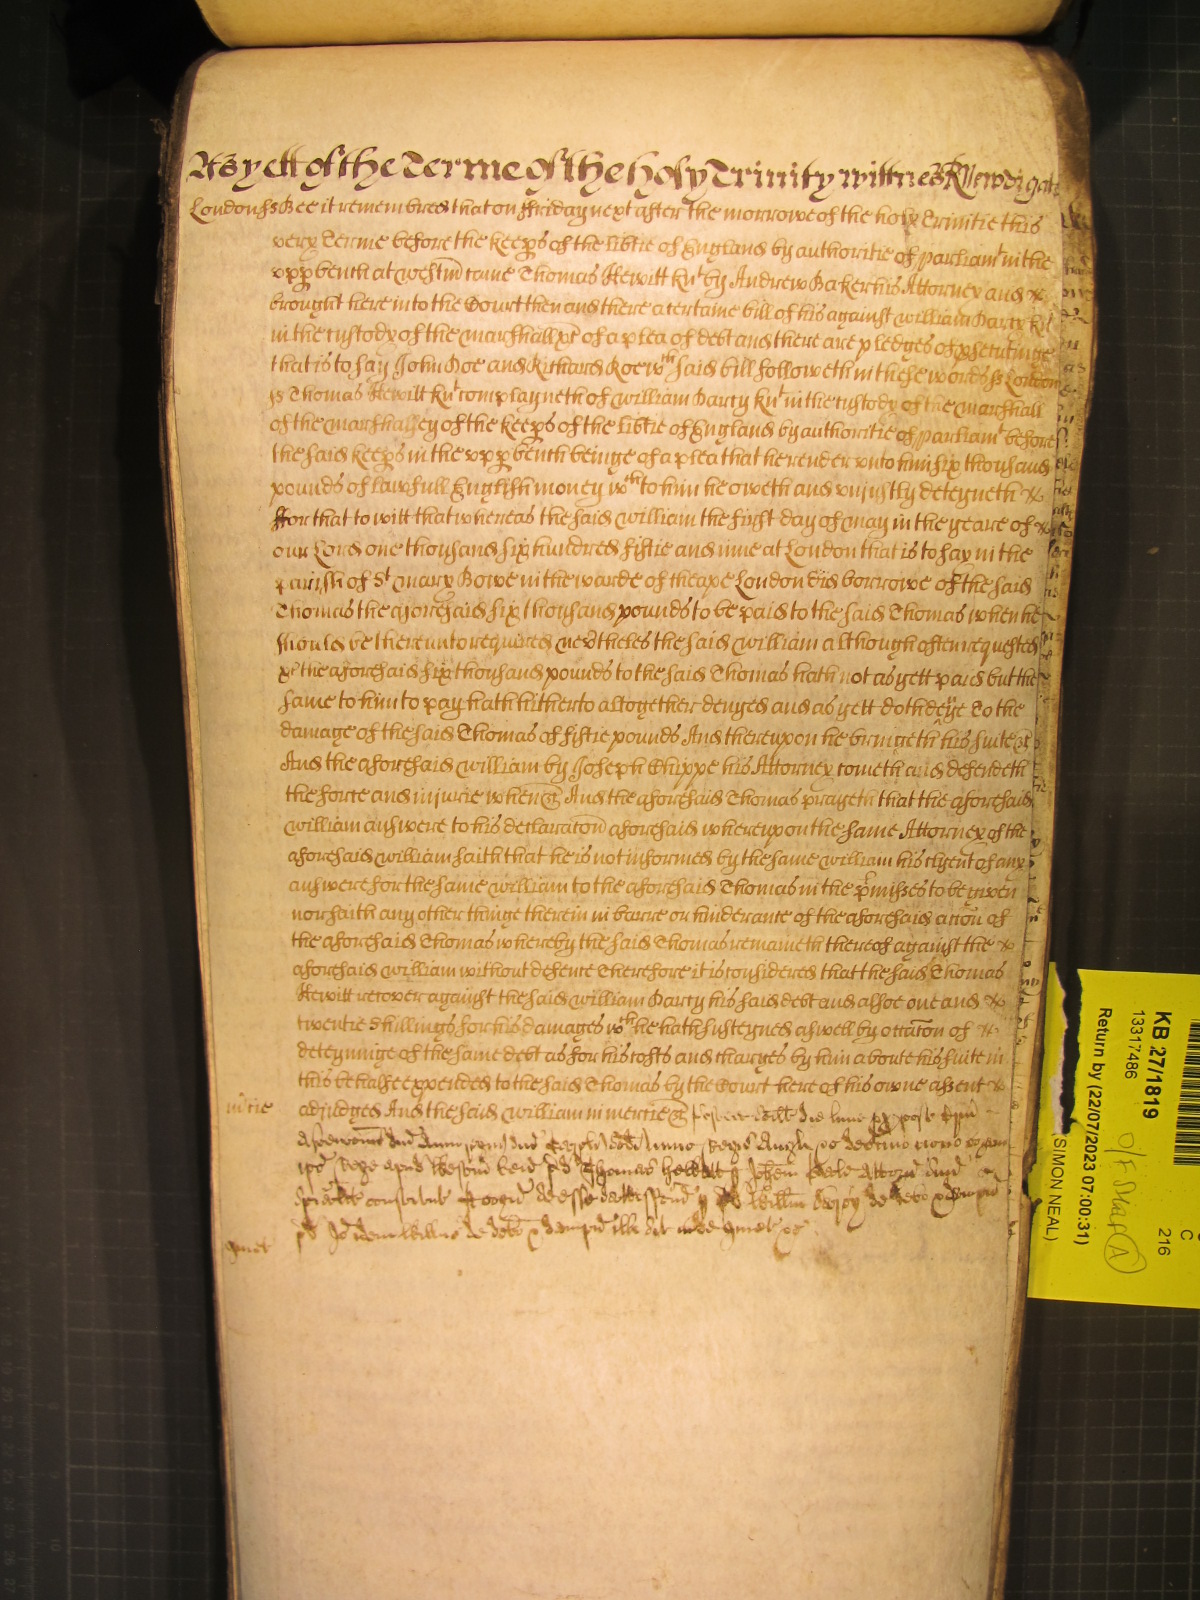 As yett of the Terme of the holy Trinity wittnes R Newdigate
London ss Bee it remembred that on ffriday next after the morrowe of the holy Trinitie this
very Terme before the keeps of the libtie of England by authoritie of parliamt in the
upp bench at Westm came Thomas Hewitt knt by Andrew Baker his Attorney and &
brought here into the Court then and there a certaine bill of his against William Darcy knt
in the custody of the marshall &c of a plea of debt and there are pledges of psecutinge
that is to say John Doe and Richard Roe wch said bill followeth in these words ss London
ss Thomas Hewitt knt complayneth of William Darcy knt in the custody of the marshall
of the marshalsey of the keeps of the libtie of England by authoritie of parliamt before
the said keeps in the upp bench beinge of a plea that he render unto him six thousand
pounds of lawfull English money wch to him he oweth and unjustly deteyneth &c
ffor that to witt that whereas the said William the first day of may in the yeare of &
our Lord one thousand six hundred fiftie and nine at London that is to say in the
parish of St mary Bowe in the warde of cheape London did borrowe of the said
Thomas the aforesaid six thousand pounds to be paid to the said Thomas when he
should be thereunto required nevtheles the said William although often requested
&c the aforesaid six thousand pounds to the said Thomas hath not as yett paid but the
same to him to pay hath hitherto altogether denyed and as yett doth denye To the
damage of the said Thomas of fiftie pounds And thereupon he bringeth his suite &c
And the aforesaid William by Joseph Chippe his Attorney cometh and defendeth
the force and injurie when &c And the aforesaid Thomas prayeth that the aforesaid
William answere to his declaracon aforesaid whereupon the same Attorney of the
aforesaid William saith that he is not informed by the same William his clyent of any
answere for the same William to the aforesaid Thomas in the pmisses to be given
nor saith any other thinge therein in barre or hinderance of the aforesaid accon of
the aforesaid Thomas whereby the said Thomas remaineth thereof against the &
aforesaid William without defence Therefore it is considered that the said Thomas
Hewitt recover against the said William Darcy his said debt and alsoe one and &
twentie shillings for his damages wch he hath susteyned aswell by occacon of &
deteyninge of the same debt as for his costs and charges by him aboute his suite in
this behalfe expended to the said Thomas by the Court here of his owne assent &
adjudged And the said William in mercie &c Postea scilt die lune px post
mcie
Anno regni dni Regis Anglie &c decimo nono coram
Rege apud Westm ven pd Thomas Hewett p Attorn suu
de debo &
pd Io idem Willms de debo & dampn ill sit inde quiet &c
quiet
KB 27/1819
13317486
216
C
Return by (22/07/2023 07:00:31)
(SIMON NEAL)
A